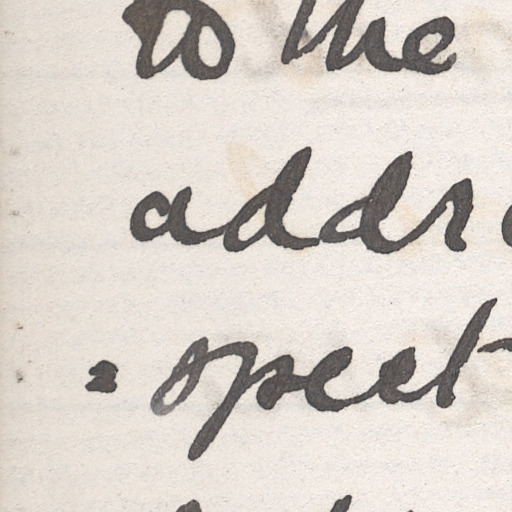 to the
addre
= spect